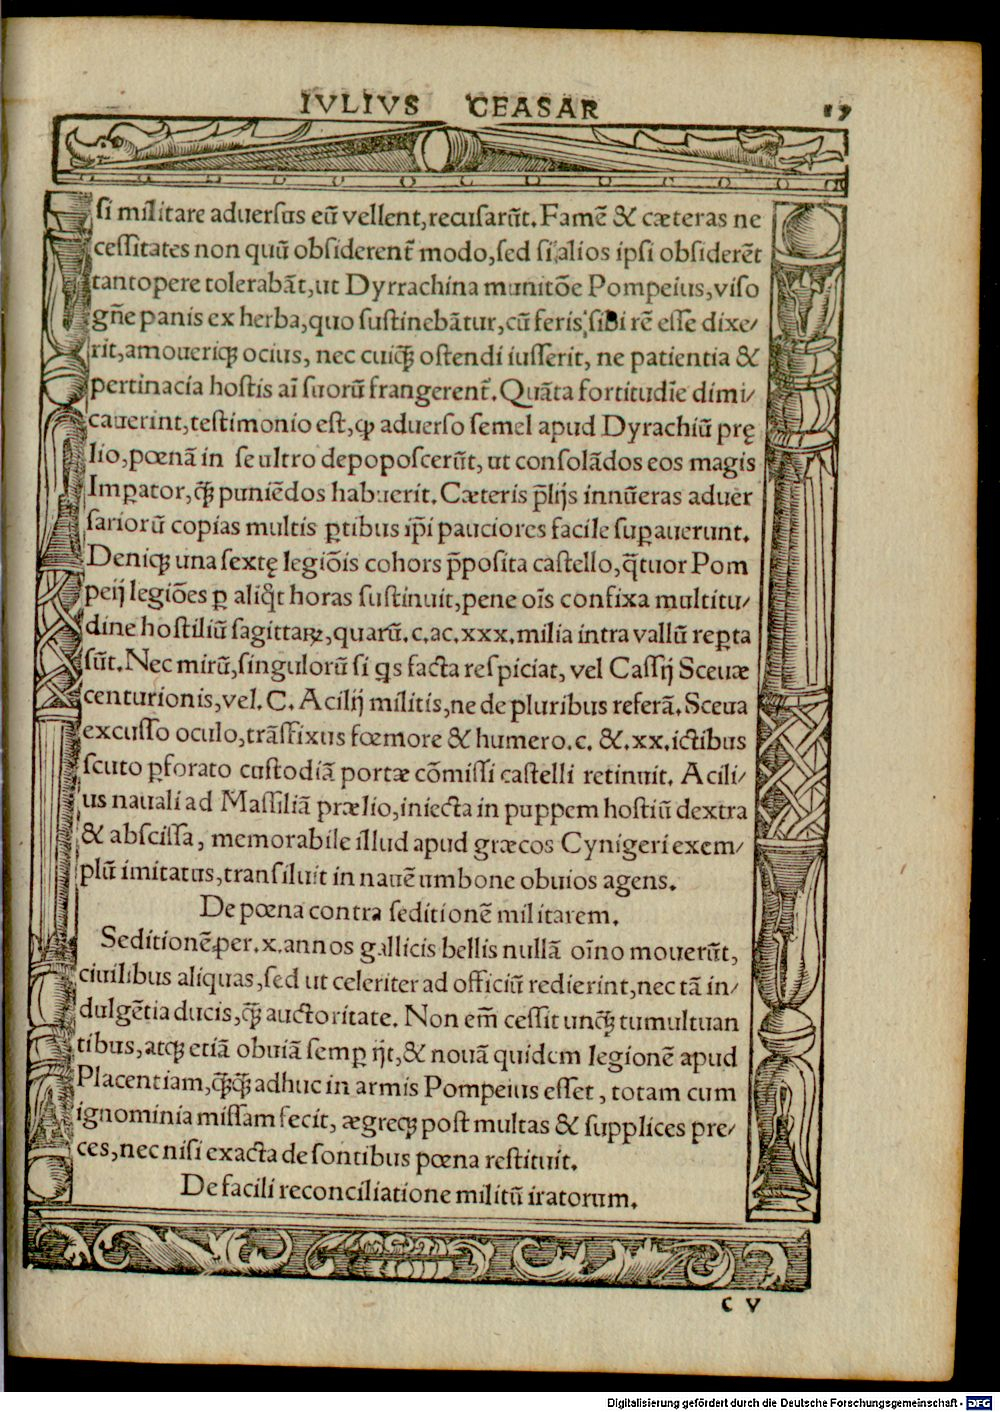 IVLIVS CEASAR 17
si militare aduersus eũ vellent,recusarũt.Famẽ & cæteras ne
cessitates non quũ obsiderent̃ modo,sed si alios ipsi obsiderẽt
tantopere tolerabãt,ut Dyrrachina munitõe Pompeius,viso
gñe panis ex herba,quo sustinebãtur,cũ feris sibi rẽ esse dixe/
rit,amoueriqꝫ ocius, nec cuiqꝫ̃ ostendi iusserit, ne patientia &
pertinacia hostis ai̇̃ suorũ frangerent̃.Quãta fortitudĩe dimi/
cauerint,testimonio est,ꝙ aduerso semel apud Dyrachiũ prę
lio,pœnã in se ultro depoposcerũt, ut consolãdos eos magis
Imꝑator,qꝫ̃ puniẽdos habuerit.Cæteris p̃lijs innũeras aduer
sariorũ copias multis ꝑtibus ip̃i pauciores facile suꝑauerunt.
Deniqꝫ una sextę legiõis cohors p̃posita castello,q̃tuor Pom
peij legiões ꝑ aliq̃t horas sustinuit,pene oĩs confixa multitu/
dine hostiliũ sagittaꝝ,quarũ.c.ac.xxx.milia intra vallũ reꝑta
sũt.Nec mirũ,singulorũ si q̇s facta respiciat, vel Cassij Sceuæ
centurionis,vel.C.Acilij militis,ne de pluribus referã.Sceua
excusso oculo,trãsfixus fœmore & humero.c. &.xx.ictibus
scuto ꝑforato custodiã portæ cõmissi castelli retinuit. Acili/
us nauali ad Massiliã prælio,iniecta in puppem hostiũ dextra
& abscissa, memorabile illud apud græcos Cynigeri exem/
plũ imitatus,transiluit in nauẽ umbone obuios agens.
De pœna contra seditionẽ militarem.
Seditionẽ per.x.annos gallicis bellis nullã oĩno mouerũt,
ciuilibus aliquas,sed ut celeriter ad officiũ redierint,nec tã in/
dulgẽtia ducis,qꝫ̃ auctoritate. Non em̃ cessit unqꝫ̃ tumultuan
tibus,atqꝫ etiã obuiã semꝑ ijt,& nouã quidem legionẽ apud
Placentiam,qꝫ̃qꝫ̃ adhuc in armis Pompeius esset, totam cum
ignominia missam fecit, ægreqꝫ post multas & supplices pre/
ces,nec nisi exacta de sontibus pœna restituit.
De facili reconciliatione militũ iratorum.
C V
Digitalisierung gefördert durch die Deutsche Forschungsgemeinschaft - DFG